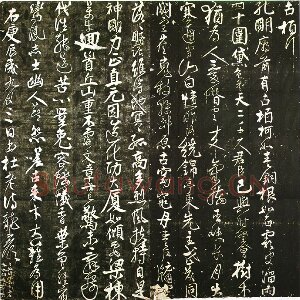 古柏行
孔明廟前有古柏柯如青銅根如石霜皮溜雨
四十圍黛色參天二千尺君臣已與時際會樹木
猶為人愛惜雲來氣接巫峽長月出
寒通雪山白憶昨路繞錦亭東先主武侯同閟
宮崔嵬枝幹郊原古窈窕丹青戶牖空落
落盤踞雖得地冥冥孤高多烈風扶持自是
神明力正直元因造化功大廈如傾要梁棟
萬牛迴首丘山重不露文章世已驚未辭剪
伐誰能送苦心豈免容螻蟻香葉終經宿
鸞鳳志士幽人莫怨嗟古來材大難為用
三日